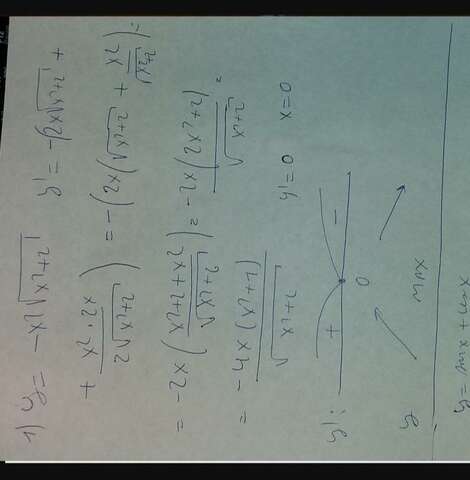 1) y = -x²√x²+2   y' = -(2x√x²+2 +
+ x²·2x / 2√x²+2) = -(2x(√x²+2 + x² / √x²+2)) =
= -2x(x²+2+x² / √x²+2) = -2x(2x²+2) / √x²+2 =
= -4x(x²+1) / √x²+2   y' = 0   x = 0
y': + 0 -
y max
y = sin x + cos x